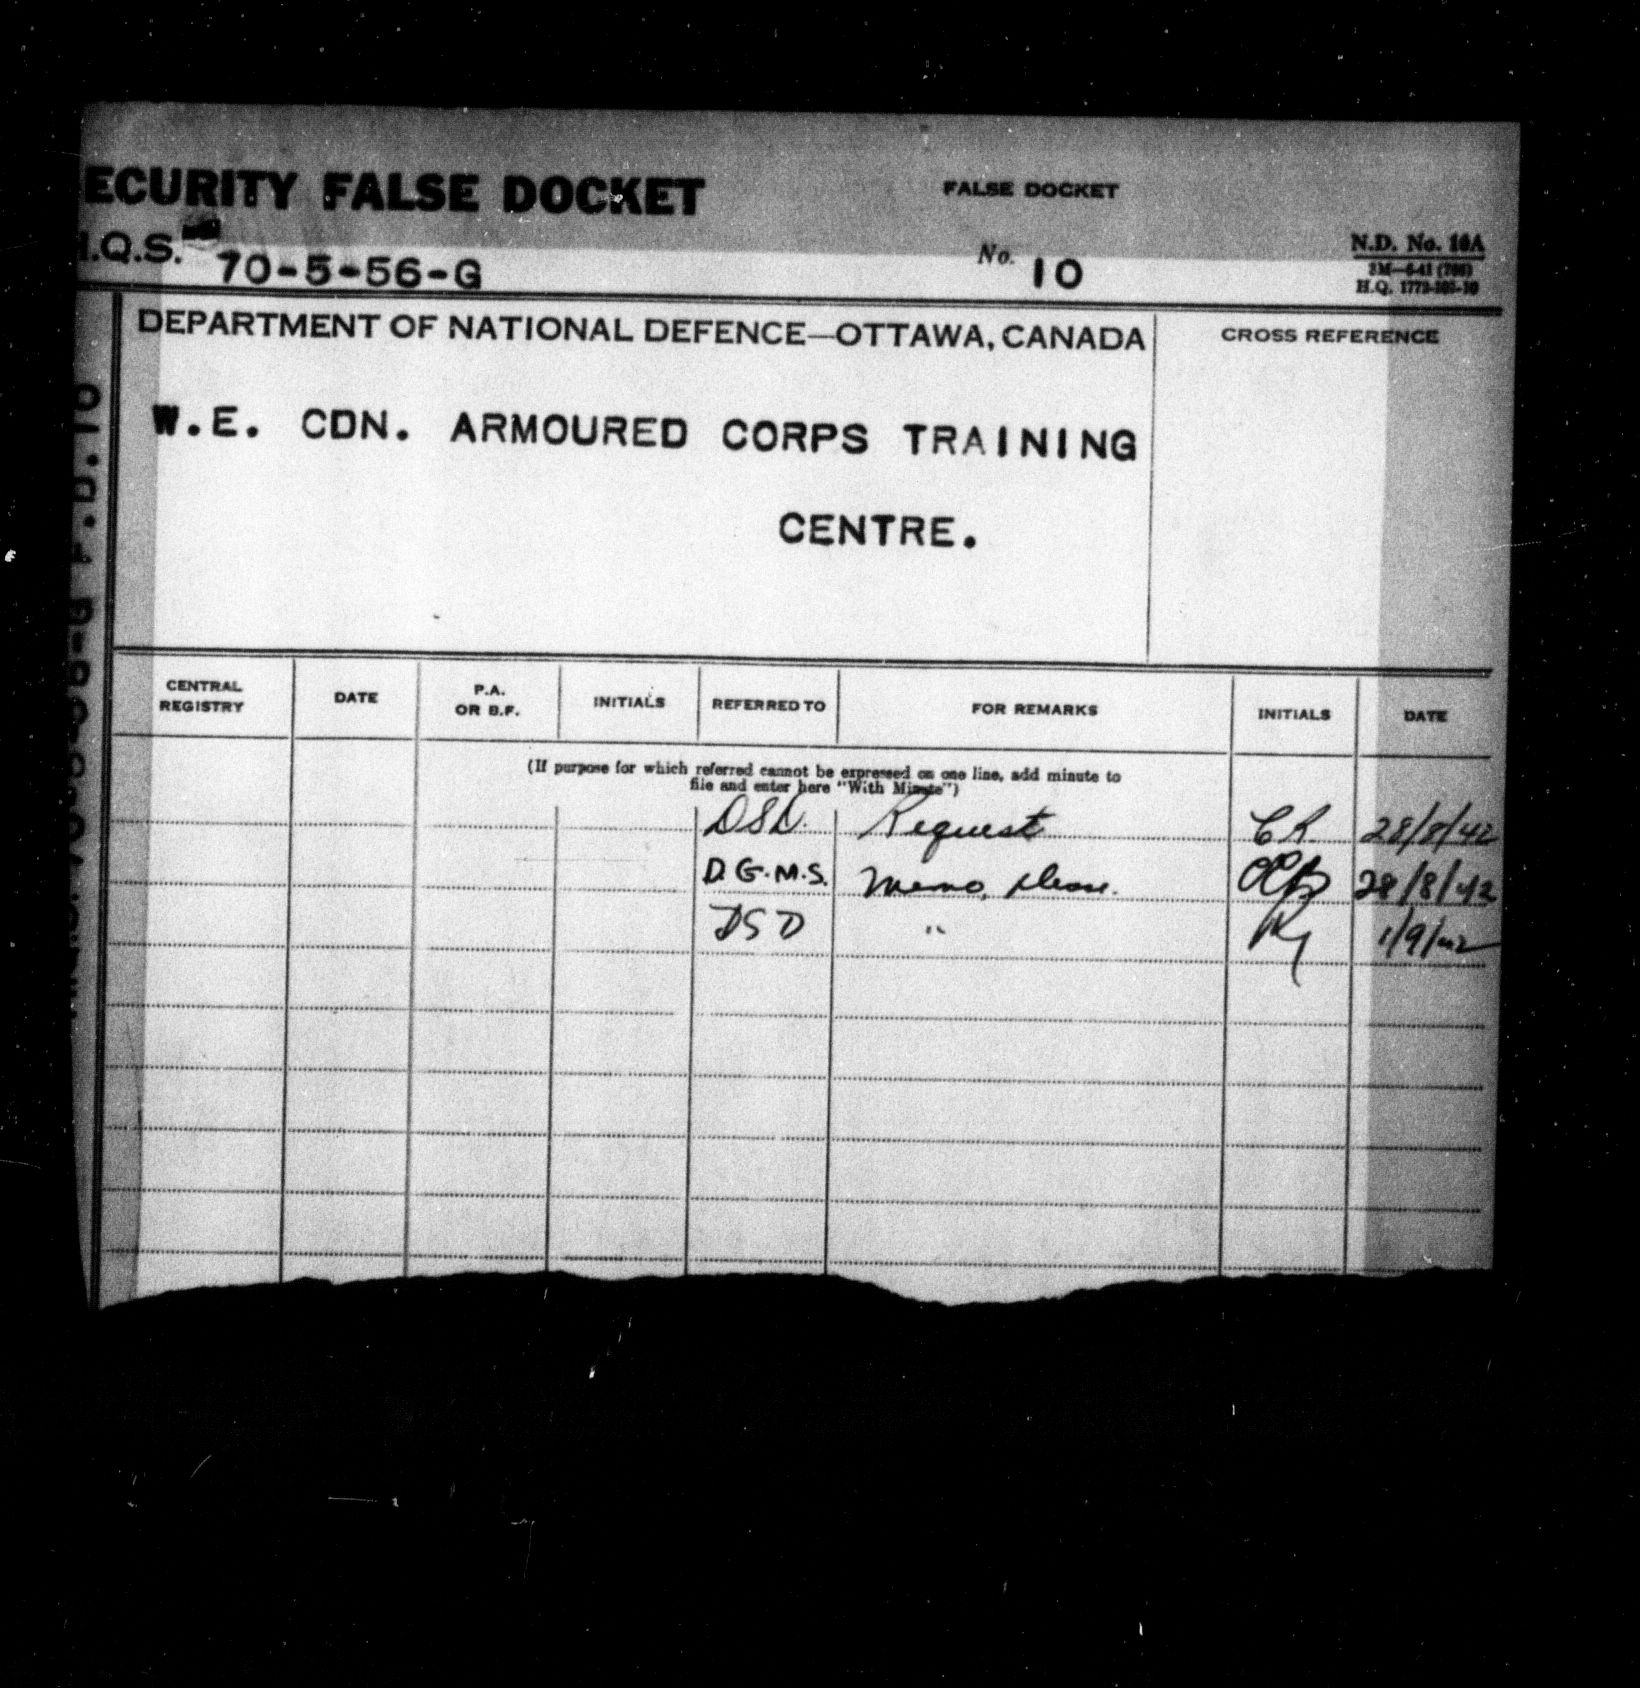 ECURITY FALSE DOCKET
FALSE DOCKET
.Q.S. 70-5-56-G
No. 10
N.D. No. 10A
H.Q. 1772-
DEPARTMENT OF NATIONAL DEFENCE—OTTAWA, CANADA
CROSS REFERENCE
W.E. CDN. ARMOURED CORPS TRAINING
CENTRE.
CENTRAL REGISTRY DATE P.A. OR B.F. INITIALS REFERRED TO FOR REMARKS INITIALS DATE
(If purpose for which referred cannot be expressed on one line, add minute to
file and enter here "With Minute")
DSD. Request CR. 28/8/42
D.G.M.S. Memo, please. 28/8/42
DSD " 1/9/42